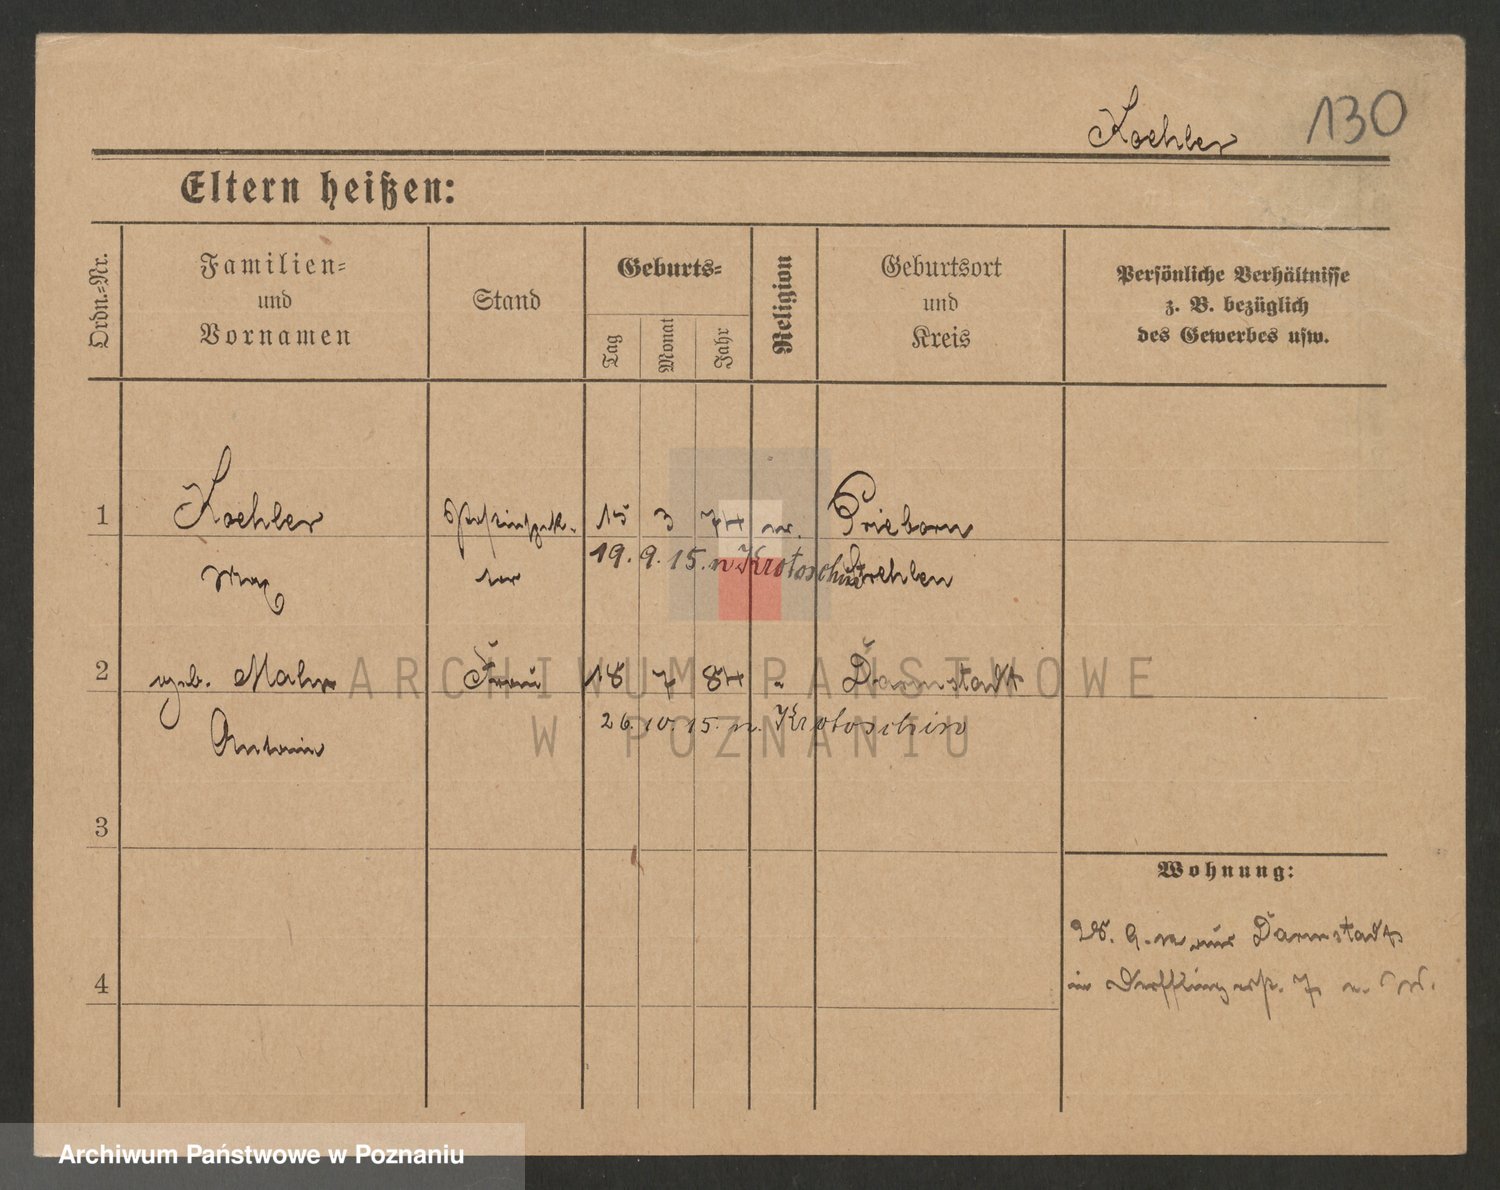 Koehler 130
Eltern heißen:
Ordn.=Nr.
Familien=
und
Vornamen
Stand
Geburts=
Tag
Monat
Jahr
Religion
Geburtsort
und
Kreis
Persönliche Verhältnisse
z. B. bezüglich
des Gewerbes usw.
1 Koehler 15 3 74 Prieborn
19. 9. 15. n Krotoschin
Max Strehlen
2 geb. Frau 18 7 84 " Darmstadt
26. 10. 15. n. Krotoschin
Antonie
3
Wohnung:
9. aus Darmstadt
4 in Derfflingerstr. 7
ARCHIWUM PAŃSTWOWE
W POZNANIU
Archiwum Państwowe w Poznaniu